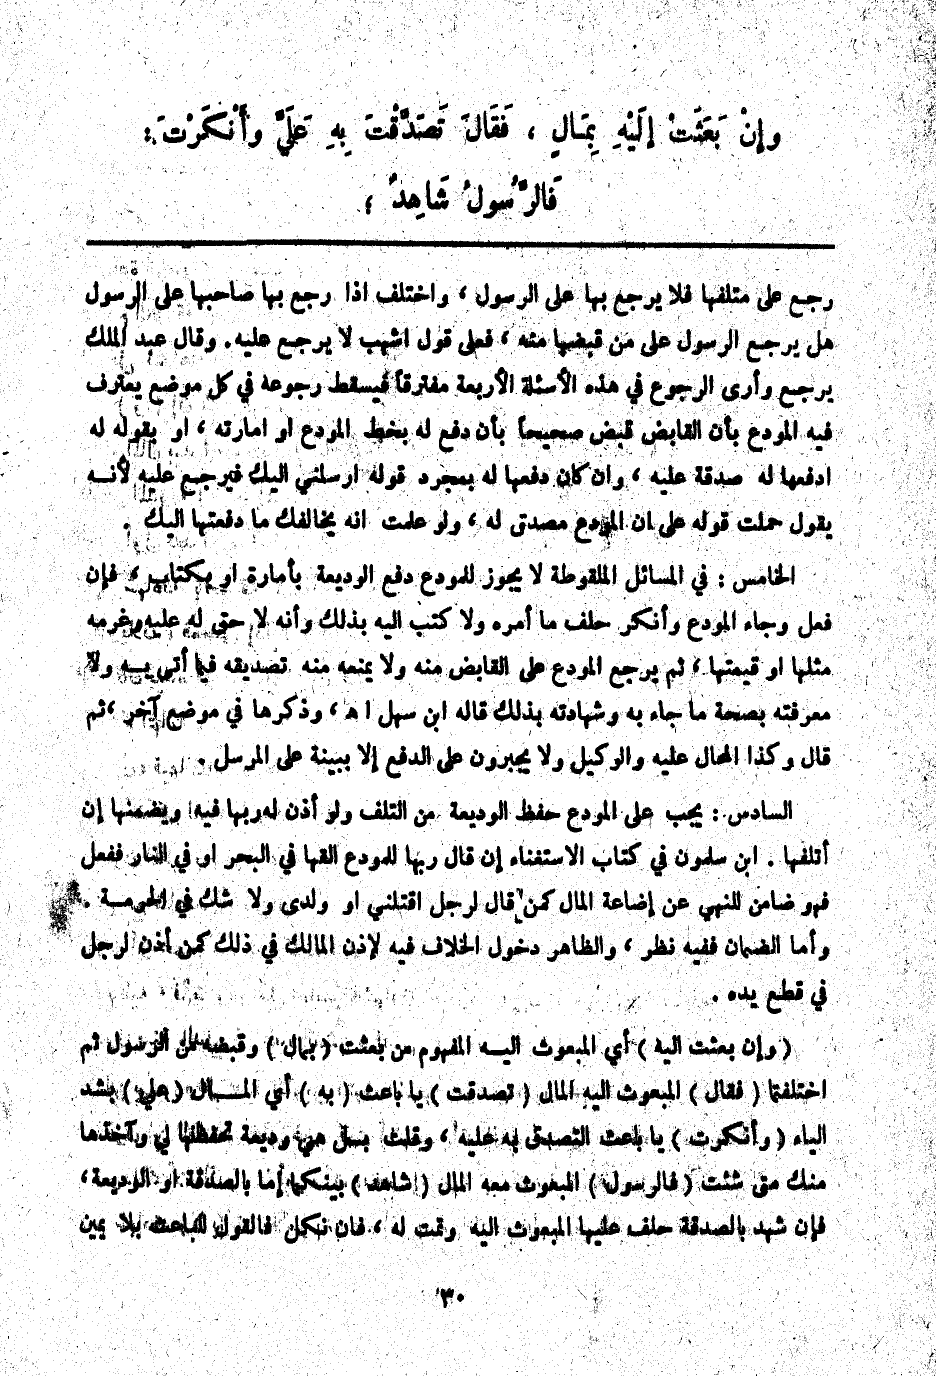 وإنْ بَعَثَتْ إلَيْهِ بِمَالٍ ، فَقَالَ تَصَدَّقْتَ بِهِ عَلَيَّ وأَنْكَرْتَ :
فَالرَّسُولُ شَاهِدٌ ؛
رجع على متلفها فلا يرجع بها على الرسول ، واختلف اذا رجع بها صاحبها على الرسول
هل يرجع الرسول على من قبضها منه ، فعلى قول اشهب لا يرجع عليه. وقال عبد الملك
يرجع وأرى الرجوع في هذه الأسئلة الأربعة مفترقاً فيسقط رجوعة في كل موضع يعترف
فيه المودع بأن القابض قبض صحيحاً بأن دفع له بخط المودع او امارته ، او بقوله له
ادفعها له صدقة عليه ، وان كان دفعها له بمجرد قوله ارسلني اليك فيرجع عليه لأنــه
يقول حملت قوله على ان المودع مصدق له ، ولو علمت انه يخالفك ما دفعتها اليك .
الخامس : في المسائل الملقوطة لا يجوز للمودع دفع الوديعة بأمارة او بكتاب ، فإن
فعل وجاء المودع وأنكر حلف ما أمره ولا كتب اليه بذلك وأنه لا حق له عليه وغرمه
مثلها او قيمتها ، ثم يرجع المودع على القابض منه ولا يمنعه منه تصديقه فيما أتى بــه ولا
معرفته بصحة ما جاء به وشهادته بذلك قاله ابن سهل ا ه ، وذكرها في موضع آخر ، ثم
قال وكذا المحال عليه والوكيل ولا يجبرون على الدفع إلا ببينة على المرسل .
السادس : يجب على المودع حفظ الوديعة من التلف ولو أذن له ربها فيه ويضمنها إن
أتلفها . ابن سلمون في كتاب الاستغناء إن قال ربها للمودع القها في البحر او في النار ففعل
فهو ضامن للنهي عن إضاعة المال كمن قال لرجل اقتلني او ولدى ولا شك في الحرمــة .
وأما الضمان ففيه نظر ، والظاهر دخول الخلاف فيه لإذن المالك في ذلك كمن أذن لرجل
في قطع يده .
( وإن بعثت اليه ) أي المبعوث اليــه المفهوم من بعثت ( بمال ) وقبضه من الرسول ثم
اختلفتما ( فقال ) المبعوث اليه المال ( تصدقت ) يا باعث ( به ) أي المــال ( علي ) بشد
الياء ( وأنكرت ) يا باعث التصدق به عليه ، وقلت بل هي وديعة تحفظها لي وآخذها
منك متى شئت ( فالرسول ) المبعوث معه المال ( شاهد ) بينكما إما بالصدقة او الوديعة ،
فإن شهد بالصدقة حلف عليها المبعوث اليه وتمت له ، فان نكل فالقول للباعث بلا يمين
٣٠